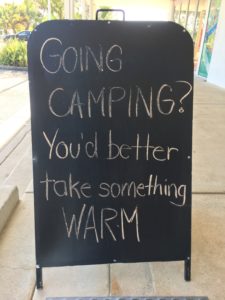 GOING
CAMPING?
You'd better
take something
WARM